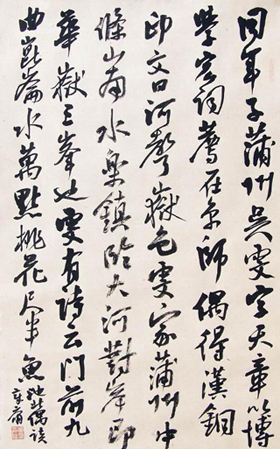 同年子蒲州吳雯字天章以博
學宏詞薦在京師偶得漢銅
印文曰河聲嶽色雯家蒲州中
條山南永樂鎮臨大河對岸即
華嶽三峯也雯有詩云門前九
曲崑崙水萬點桃花尺半魚
池北偶談